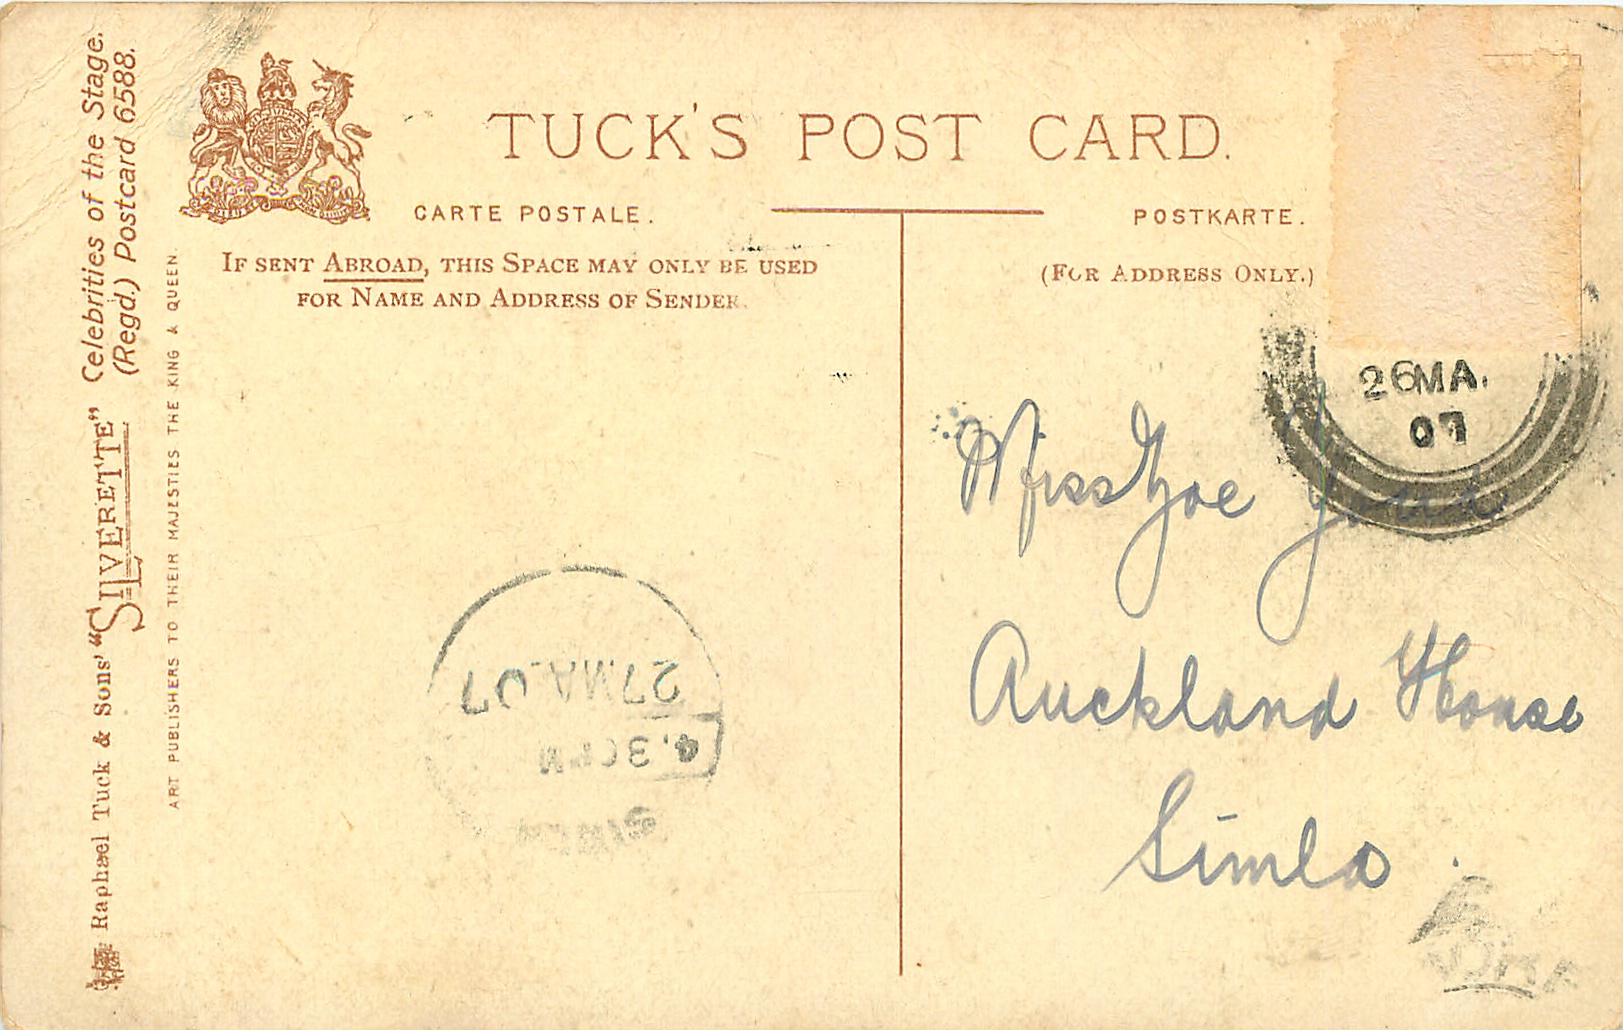 Celebrities of the Stage.
Raphael Tuck & Sons' "SILVERETTE" (Regd.) Postcard 6588.
ART PUBLISHERS TO THEIR MAJESTIES THE KING & QUEEN.
TUCK'S POST CARD.
CARTE POSTALE.
POSTKARTE.
IF SENT ABROAD, THIS SPACE MAY ONLY BE USED
FOR NAME AND ADDRESS OF SENDER.
(FOR ADDRESS ONLY.)
26MA.
07
Miss Zoe
Auckland House
Simla
27.MA.07
4.30PM
SIMLA